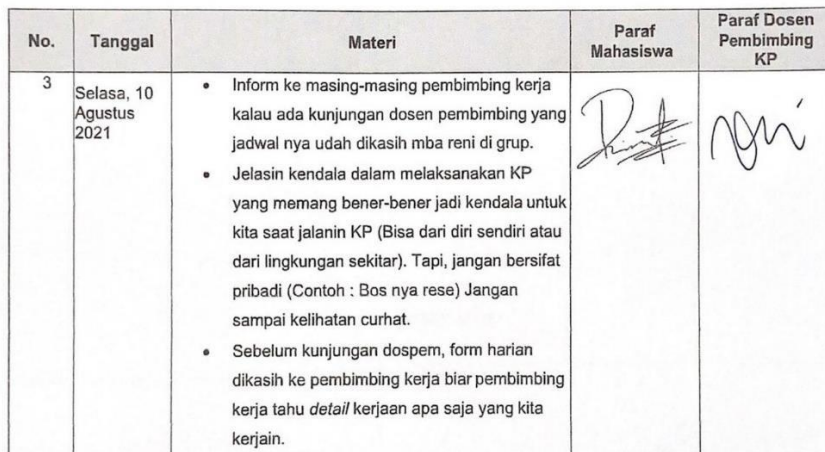 No.
Tanggal
Materi
Paraf
Mahasiswa
Paraf Dosen
Pembimbing
KP
3
Selasa, 10
Agustus
2021
• Inform ke masing-masing pembimbing kerja
kalau ada kunjungan dosen pembimbing yang
jadwal nya udah dikasih mba reni di grup.
• Jelasin kendala dalam melaksanakan KP
yang memang bener-bener jadi kendala untuk
kita saat jalanin KP (Bisa dari diri sendiri atau
dari lingkungan sekitar). Tapi, jangan bersifat
pribadi (Contoh : Bos nya rese) Jangan
sampai kelihatan curhat.
• Sebelum kunjungan dospem, form harian
dikasih ke pembimbing kerja biar pembimbing
kerja tahu detail kerjaan apa saja yang kita
kerjain.